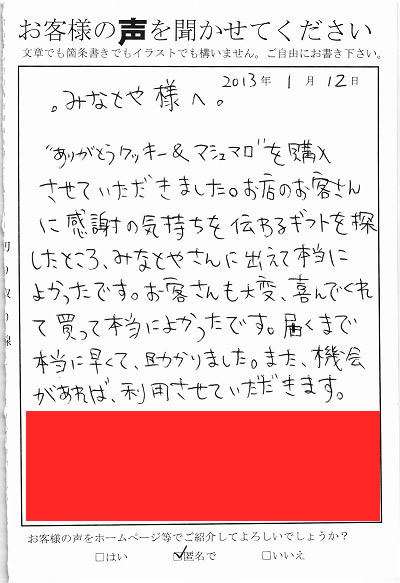 お客様の声を聞かせてください
文章でも箇条書きでもイラストでも構いません。ご自由にお書き下さい。
2013年 1月 12日
。みなとや様へ。
"ありがとうクッキー&マシュマロ"を購入
させていただきました。お店のお客さん
に感謝の気持ちを伝わるギフトを探
したところ、みなとやさんに出えて本当に
よかったです。お客さんも大変、喜んでくれ
て買って本当によかったです。届くまで
本当に早くて、助かりました。また、機会
があれば、利用させていただきます。
切り取り線
お客様の声をホームページ等でご紹介してよろしいでしょうか？
□はい ☑匿名で □いいえ